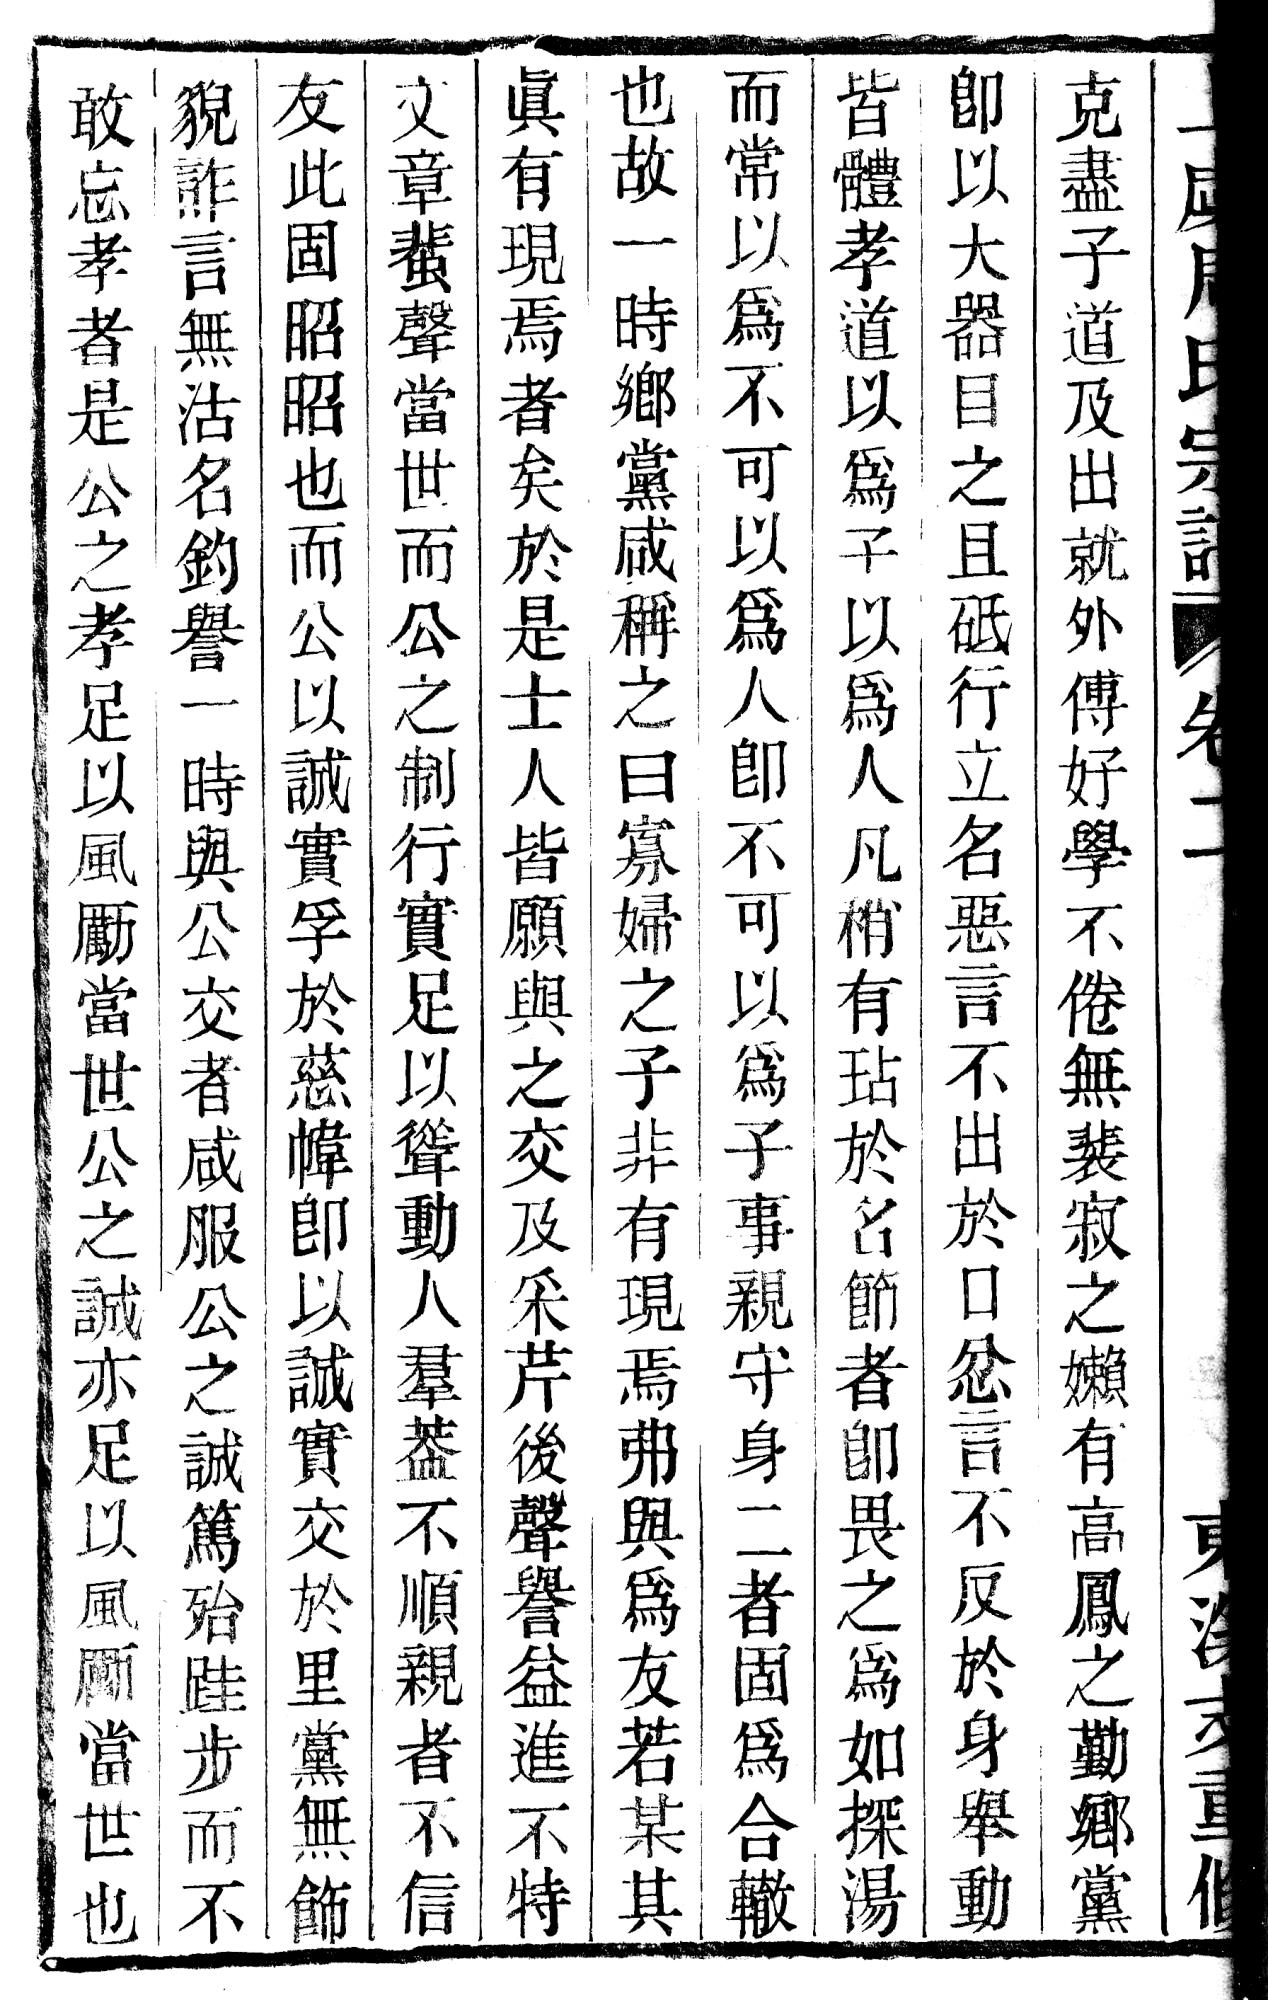 氏宗譜 卷二 重修
克盡子道及出就外傅好學不倦無裴寂之嬾有高鳳之勤鄉黨
卽以大器目之且砥行立名惡言不出於口忿言不反於身舉動
皆體孝道以爲子以爲人凡稍有玷於名節者卽畏之爲如探湯
而常以爲不可以爲人卽不可以爲子事親守身二者固爲合轍
也故一時鄉黨咸稱之曰寡婦之子非有現焉弗與爲友若某其
眞有現焉者矣於是士人皆願與之交及采芹後聲譽益進不特
文章蜚聲當世而公之制行實足以聳動人羣葢不順親者不信
友此固昭昭也而公以誠實孚於慈幃卽以誠實交於里黨無飾
貌詐言無沽名釣譽一時與公交者咸服公之誠篤殆跬步而不
敢忘孝者是公之孝足以風勵當世公之誠亦足以風勵當世也